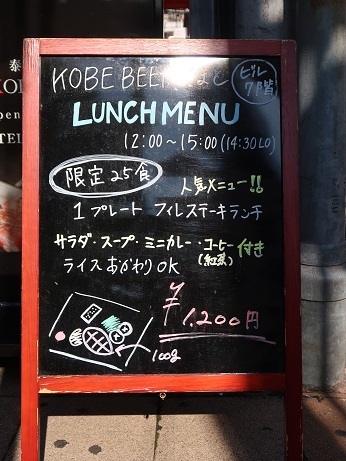 KOBE BEEF
ビル7階
LUNCH MENU
12:00〜15:00(14:30LO)
限定25食
人気メニュー!!
1プレート フィレステーキランチ
サラダ・スープ・ミニカレー・コーヒー(紅茶)付き
ライスおかわりOK
¥1,200円
100g
泰